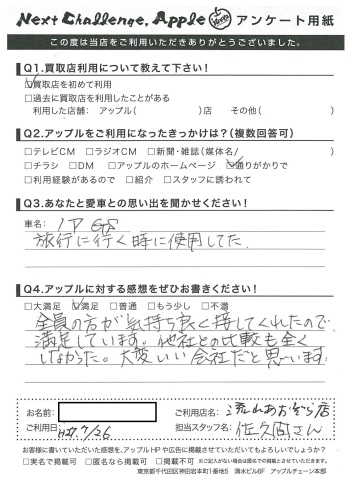 Next Challenge, Apple アンケート用紙
この度は当店をご利用いただきありがとうございました。
Q1.買取店利用について教えて下さい!
☑買取店を初めて利用
□過去に買取店を利用したことがある
利用した店舗: アップル( )店 その他( )
Q2.アップルをご利用になったきっかけは?(複数回答可)
□テレビCM □ラジオCM □新聞・雑誌(媒体名/ )
□チラシ □DM □アップルのホームページ ☑通りがかりで
□利用経験があるので □紹介 □スタッフに誘われて
Q3.あなたと愛車との思い出を聞かせください!
車名:
旅行に行く時に使用してた
Q4.アップルに対する感想をぜひお書きください!
□大満足 ☑満足 □普通 □もう少し □不満
全員の方が気持ち良く接してくれたので
満足しています。他社との比較も全く
しなかった。大変いい会社だと思います。
お名前: ご利用店名: 流山おおたかの森店
ご利用日: H27.7/26 担当スタッフ名: 佐久間さん
お客様に書いていただいた感想を、アップルHPや広告に掲載させていただいてもよろしいでしょうか?
□実名で掲載可 □匿名なら掲載可 □掲載不可 ※ご記入がない場合は匿名での掲載とさせていただきます。
東京都千代田区神田岩本町1番地5 清水ビル6F アップルチェーン本部